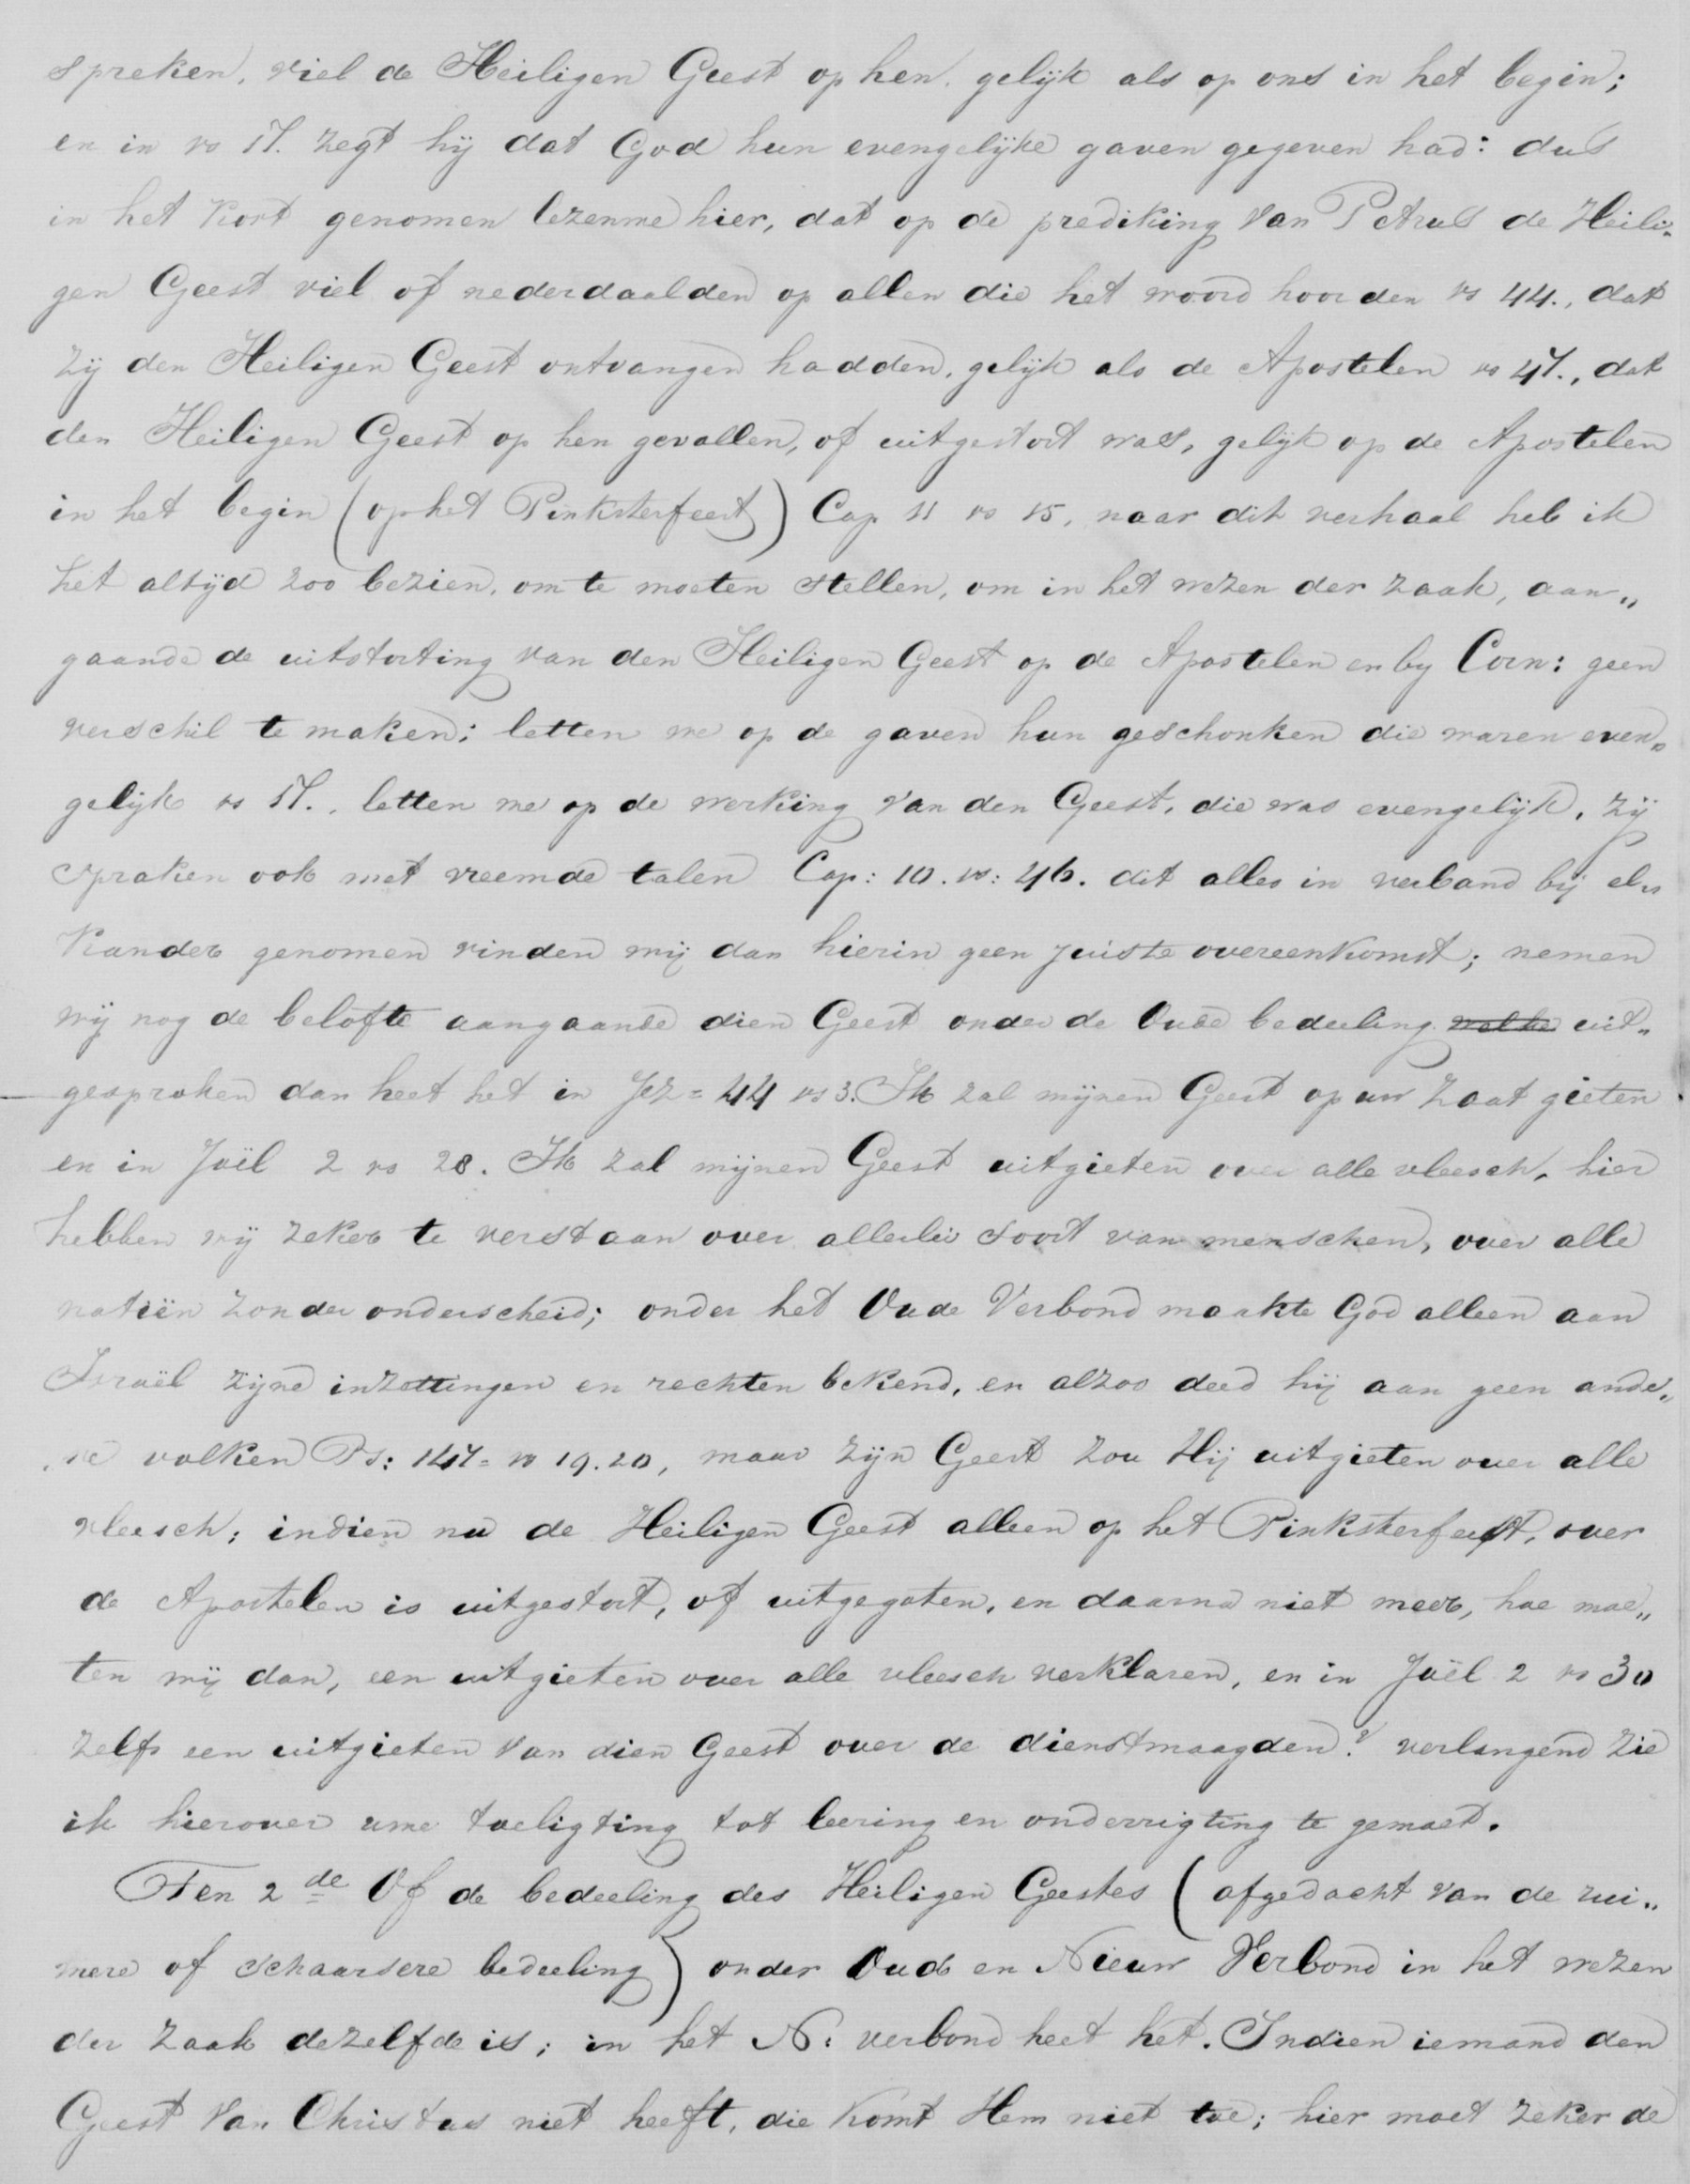 spreken, viel de Heiligen Geest op hen, gelijk als op ons in het begin;
en in vs 17. zegt hij dat God hun evengelijke gaven gegeven had: dus
in het kort genomen lezen we hier, dat op de prediking van Petrus de Heili„
gen Geest viel of nederdaalden op allen die het woord hoorden vs 44., dat
zij den Heiligen Geest ontvangen hadden, gelijk als de Apostelen vs 47., dat
den Heiligen Geest op hen gevallen, of uitgestort was, gelijk op de Apostelen
in het begin (op het Pinksterfeest) Cap 11 vs 15, naar dit verhaal heb ik
het altijd zoo bezien, om te moeten stellen, om in het wezen der zaak, aan„
gaande de uitstorting van den Heiligen Geest op de Apostelen en by Corn: geen
verschil te maken; letten we op de gaven hun geschonken die waren even„
gelijk vs 17., letten we op de werking van den Geest, die was evengelijk, zij
spraken ook met vreemde talen Cap: 10. vs: 46. dit alles in verband bij el„
kander genomen vinden wij dan hierin geen juiste overeenkomst; nemen
wij nog de belofte aangaande dien Geest onder de Oude bedeeling welke uit„
gesproken dan heet het in Jez= 44 vs 3. Ik zal mijnen Geest op uw zaat gieten
en in Joël 2 vs 28. Ik zal mijnen Geest uitgieten over alle vleesch, hier
hebben wij zeker te verstaan over allerlei soort van menschen, over alle
natiën zonder onderscheid; onder het Oude Verbond maakte God alleen aan
Israël zijne inzettingen en rechten bekend, en alzoo deed hij aan geen ande„
re volken Ps: 147= vs 19.20, maar zijn Geest zou Hij uitgieten over alle
vleesch; indien nu de Heiligen Geest alleen op het Pinksterfeest, over
de Apostelen is uitgestort, of uitgegoten, en daarna niet meer, hoe moe„
ten wij dan, een uitgieten over alle vleesch verklaren, en in Joël 2 vs 30
zelfs een uitgieten van dien Geest over de dienstmaagden? verlangend zie
ik hierover uwe toeligting tot leering en onderrigting te gemoet.
Ten 2de Of de bedeeling des Heiligen Geestes (afgedacht van de rui„
mere of schaarsere bedeeling) onder Oud en Nieuw Verbond in het wezen
der zaak dezelfde is; in het N: verbond heet het. Indien iemand den
Geest van Christus niet heeft, die komt Hem niet toe; hier moet zeker de